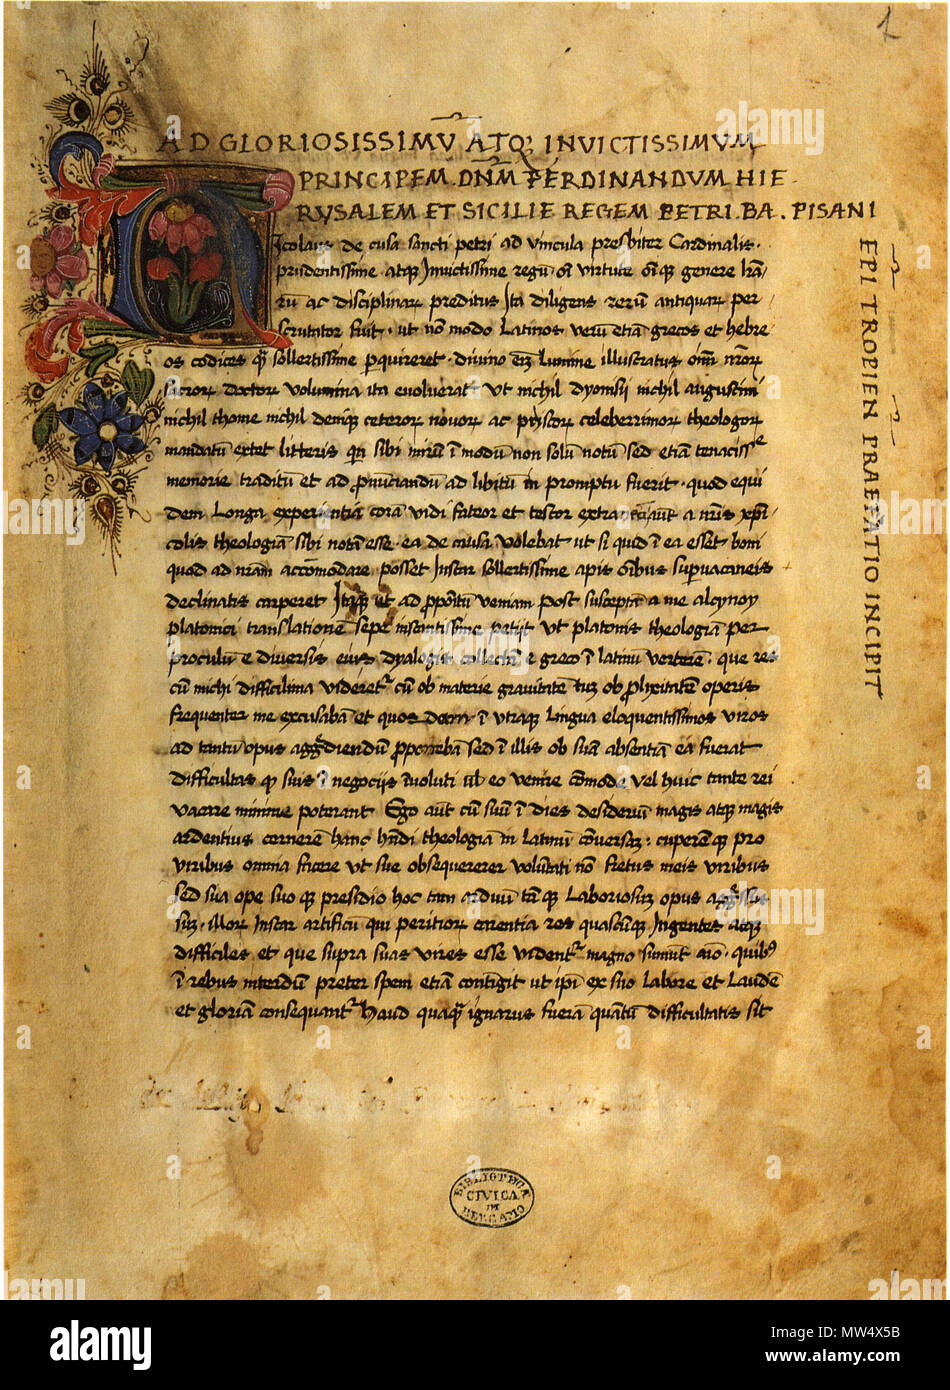 1
AD GLORIOSISSIMŪ ATQ; INVICTISSIMUM
PRINCIPEM. DN̄M FERDINANDVM HIE
RVSALEM ET SICILIE REGEM PETRI. BA. PISANI
EPI TROPIEN PRAEFATIO INCIPIT
Nicolaus de cusa sancti petri ad vincula presbiter Cardinalis.
prudentissime atq; Invictissime regū oī virtute oīq; genere
ac disciplinaꝝ preditus Ita diligens rerū antiquaꝝ per
scrutator fuit. ut nō modo Latinos verū etiā grecos et hebre
os codices sollertissime pquireret. divino Lumine illustratus
doctoꝝ volumina ita evoluerat ut nichil dyonisii nichil augustini
nichil thome nichil deniq; ceteroꝝ novoꝝ ac priscoꝝ celeberrimoꝝ theologoꝝ
mandatū extet litteris sibi mirū ī modū non solū notū sed etiā tenacissᵉ
memorie traditū et ad pnūciandū ad libitū in promptu fuerit. quod equi
dem Longa experientia corā vidi fateor et testor
colis theologiā sibi notā esse. ea de causa volebat ut si quid ī ea esset boni
quod ad nr̄am accōmodare posset Instar sollertissime apis oībus supvacaneis
declinatis carperet Itaq; ut ad ppositū veniam post susceptā a me alcynoy
platonici translationē sepe instantissime petijt ut platonis theologiā per
proculū e diversis eius dyalogis collectā e greco ī latinū verterē. que res
cū michi difficilima videretʳ cū ob materie gravitatē tū ob plixitatē operis
frequenter me excusabā et quosdam ī utraq; lingua eloquentissimos viros
ad tantū opus aggrediendū pponebā sed ī illis ob suā absentiā ea fuerat
difficultas suis ī negocijs īvoluti eo venire cōmode vel huic tante rei
vacare minime poterant Ego aūt cū suū ī dies desideriū magis atq; magis
ardentius cernerē hanc theologiā in Latinū cōversā. cuperēq; pro
viribus omnia facere ut sue obsequererer volūtati nō fretus meis viribus
sed sua ope suo q; presidio hoc tam arduū tāq; Laboriosū opus
sū. illoꝝ instar artificū qui peritioꝝ carentia res quascūq; Ingentes atq;
difficiles et que supra suas vires esse videntʳ magno sumūt aīo. quibꝰ
ī rebus interdū preter spem etiā contīgit ut ipī ex suo labore et Laudē
et gloriā consequantʳ haud quaq̄ ignarus fuerā quātū difficultatis sit
BIBLIOTECA
CIVICA
DI
BERGAMO
alamy
Image ID: MW4X5B
www.alamy.com